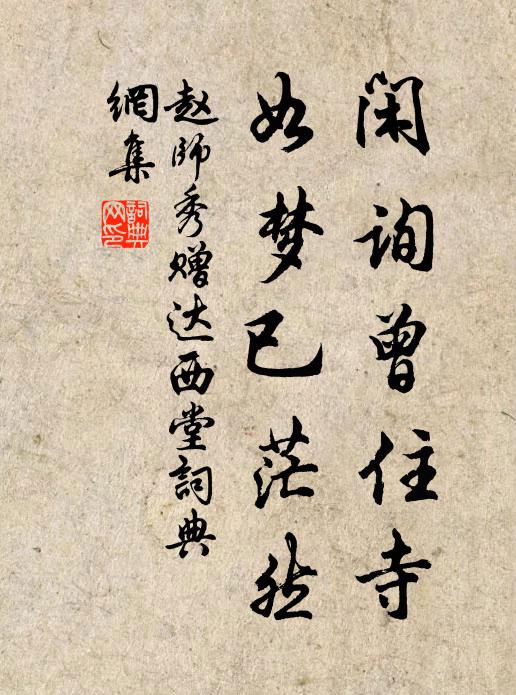 闲询曾住寺
如梦已茫然
赵师秀赠达西堂詞典
網集
詞典
网印